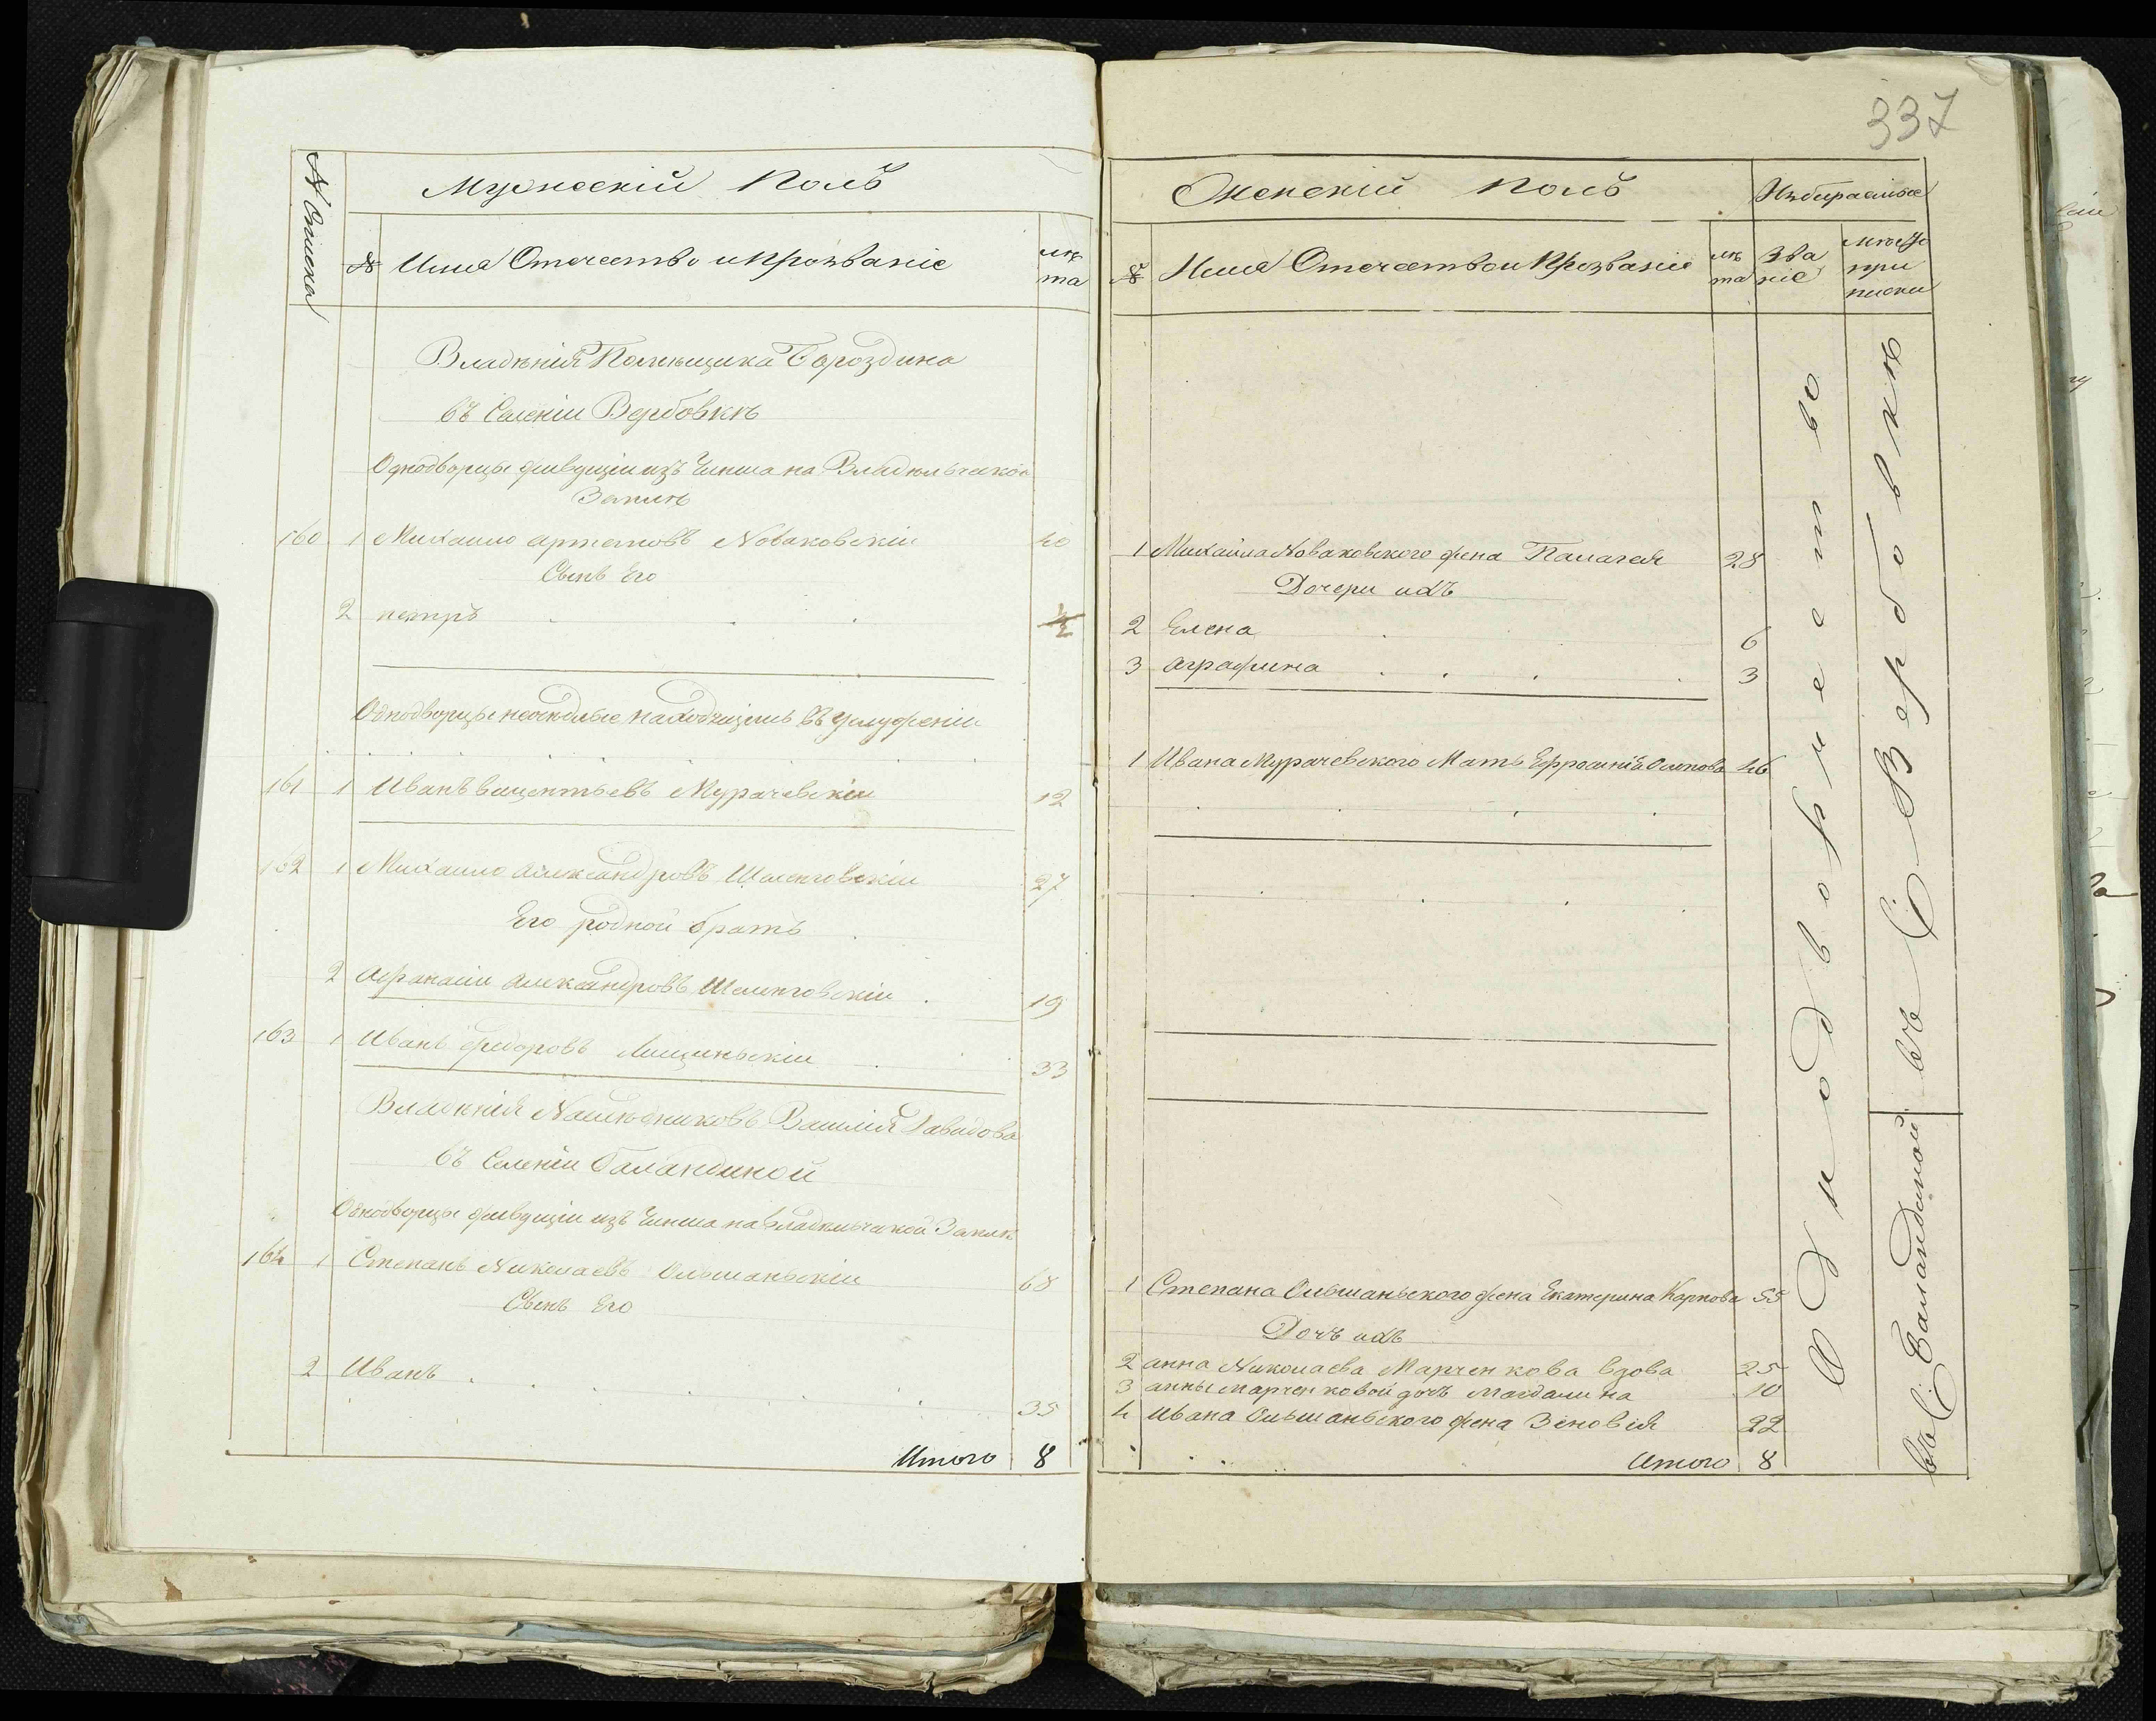 337
N Списка
Мужескій Полъ
№ Имя Отечество и Прозваніе лѣ та
Владѣнія Помѣщика Бороздина
въ Селеніи Вербовкѣ
Однодворцы живущіи изъ Чинша на Владѣльческой
Землѣ
160 1 Михайло Артемовъ Новаковскій 40
Сынъ Его
2 петръ ½
Однодворцы неоседлые находящіесь въ услуженіи
161 1 Иванъ Вицентьевъ Мурачевскій 12
162 1 Михайло Александровъ Шеленговскій 27
Его родной братъ
2 Афанасій Александровъ Шеленговскій 19
163 1 Иванъ Федоровъ Лищинскій 33
Владѣнія Наслѣдниковъ Василія Давидова
въ Селеніи Баландиной
Однодворцы живущіи изъ Чинша на Владѣльческой Землѣ
164 1 Степанъ Николаевъ Ольшаньскій 68
Сынъ Его
2 Иванъ 35
Итого 8
Женскій Полъ
Избираемые
№ Имя Отечество и Прозваніе лѣ та
Зва ніе
мѣсто при писки
1 Михайла Новаковского жена Палагея 28
Дочери ихъ
2 Елена 6
3 Аграфина 3
1 Ивана Мурачевского Мать Ефросинія Осипова 46
1 Степана Ольшаньского жена Екатерина Карпова 55
Дочъ ихъ
2 анна Николаева Марченкова вдова 25
3 анны марченковой дочъ Магдалина 10
4 Ивана Ольшаньского жена Зеновія 22
Итого 8
Однодворческтво
въ С. Вербовкѣ
въ С. Баландиной